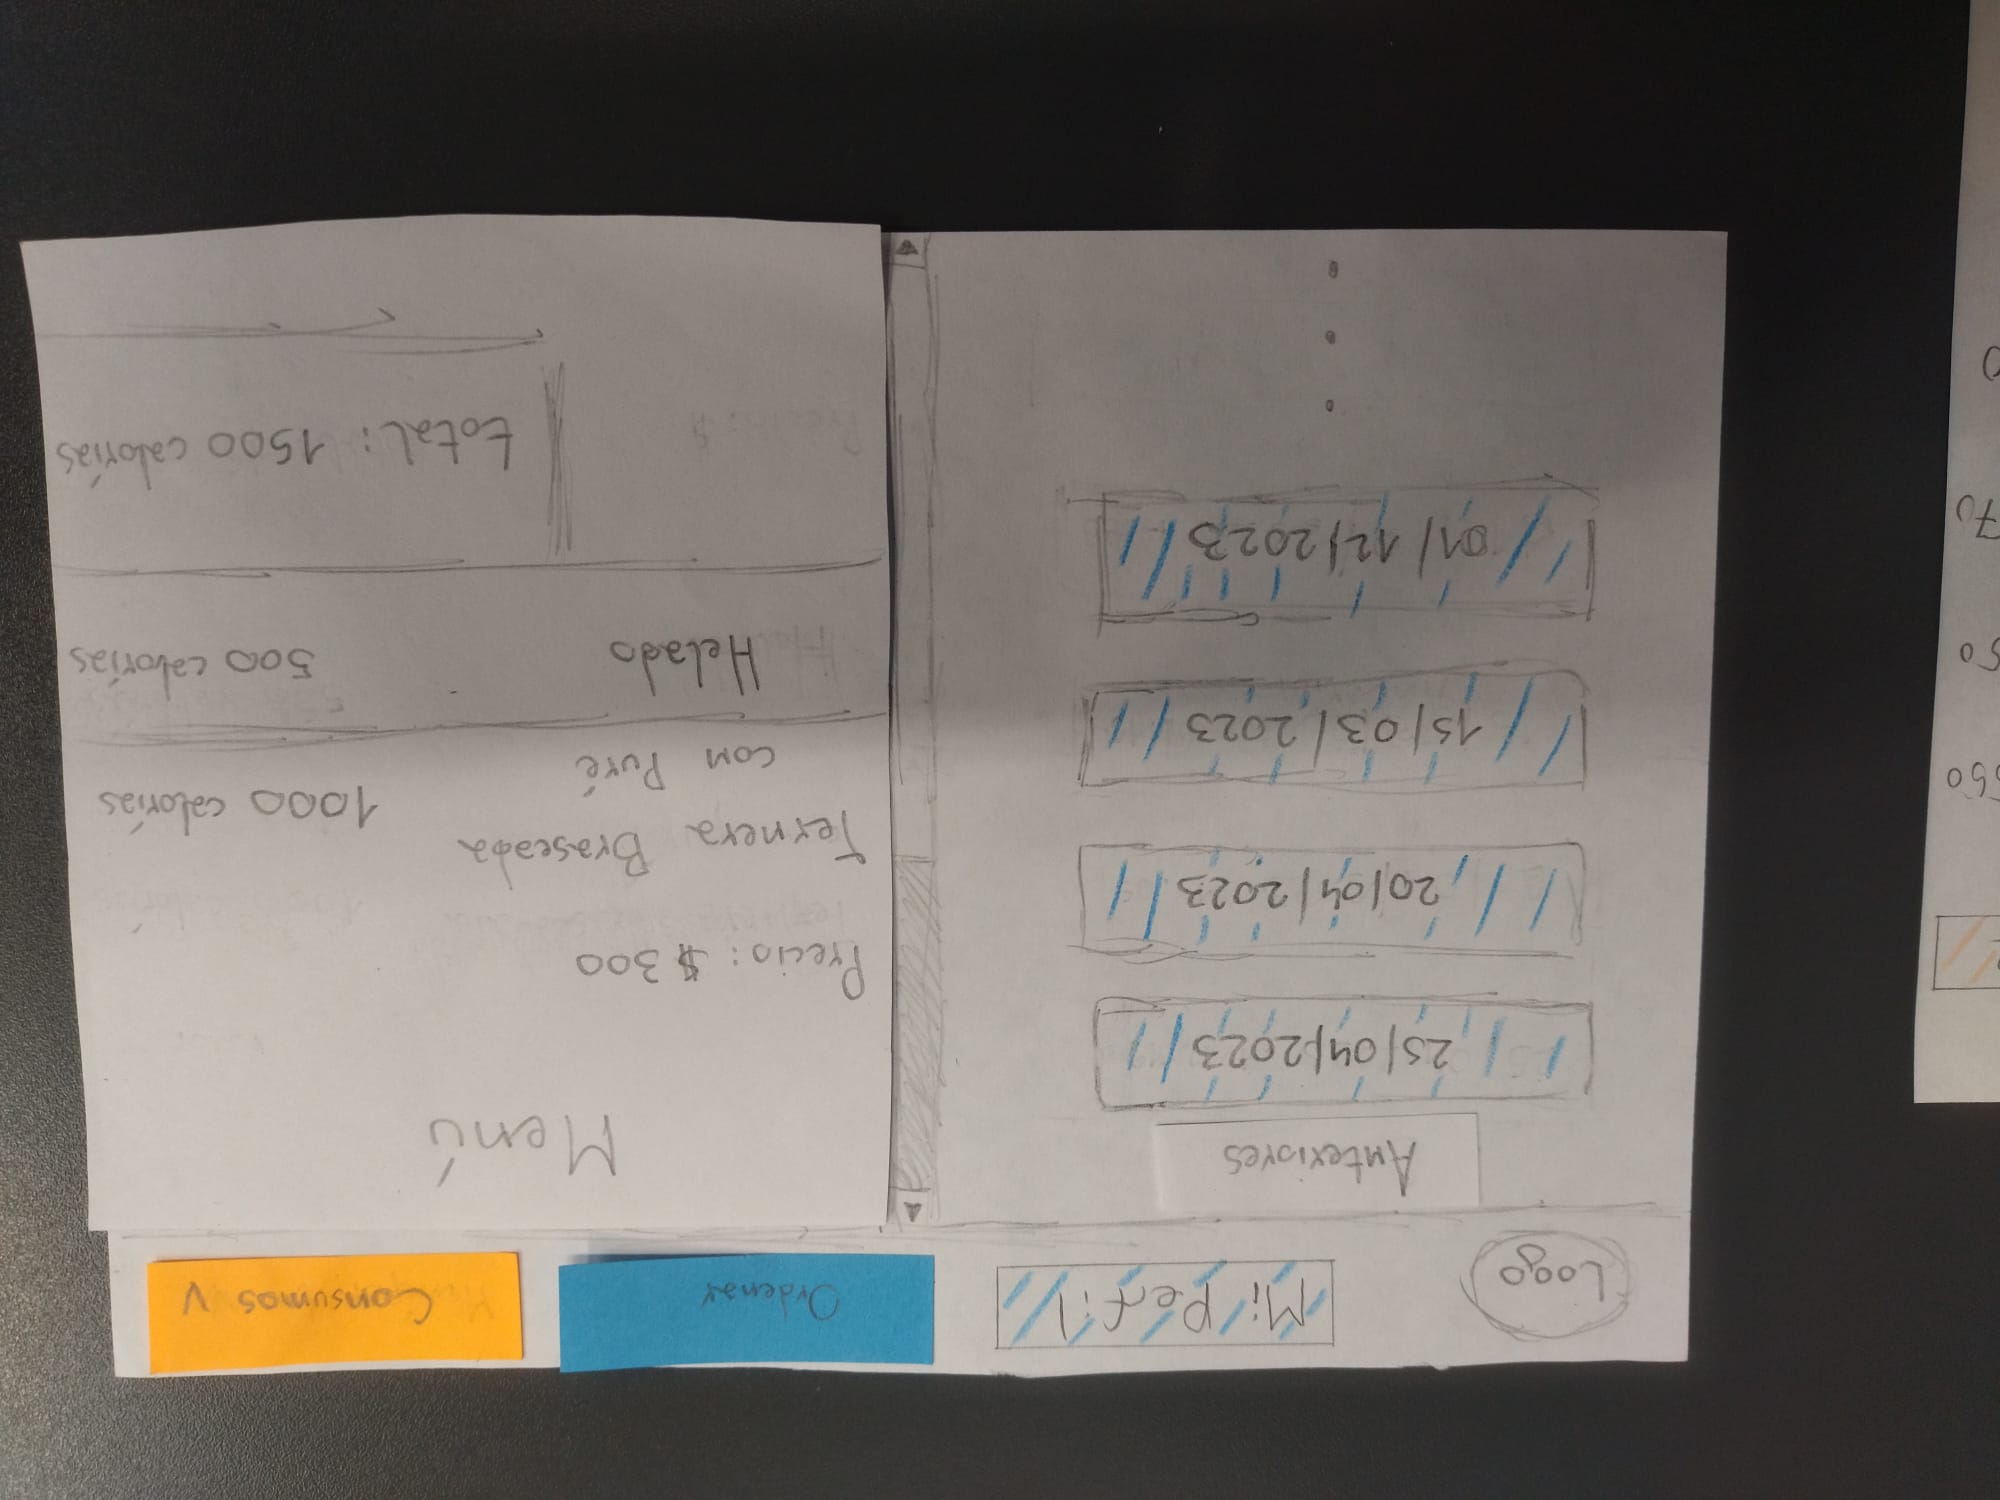 Logo
Mi Perfil
Ordenar
Consumos V
Anteriores
25/04/2023
20/04/2023
15/03/2023
01/12/2023
Menú
Precio: $ 300
Ternera Braseada
con Puré
1000 calorías
Helado
500 calorías
total: 1500 calorías
50
70
0